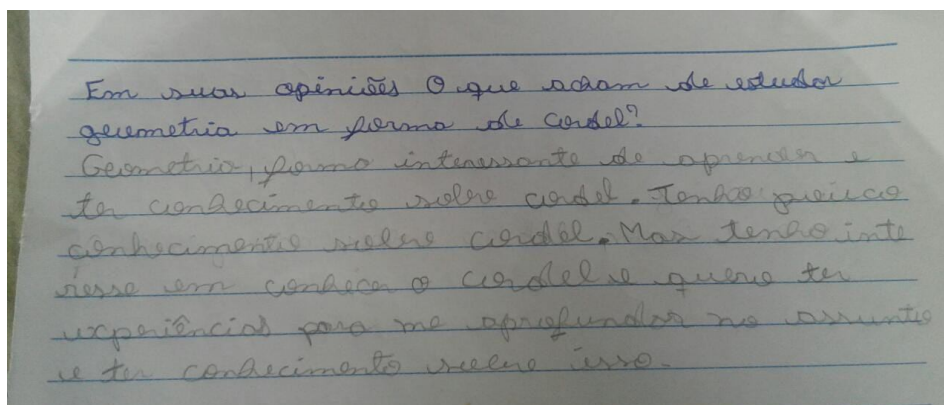 Em suas opiniões O que acham de estudar
geometria em forma de cordel?
Geometria, forma interessante de aprender e
ter conhecimento sobre cordel. Tenho pouco
conhecimento sobre cordel. Mas tenho inte
resse em conhecer o cordel e quero ter
experiências para me aprofundar no assunto
e ter conhecimento sobre isso.